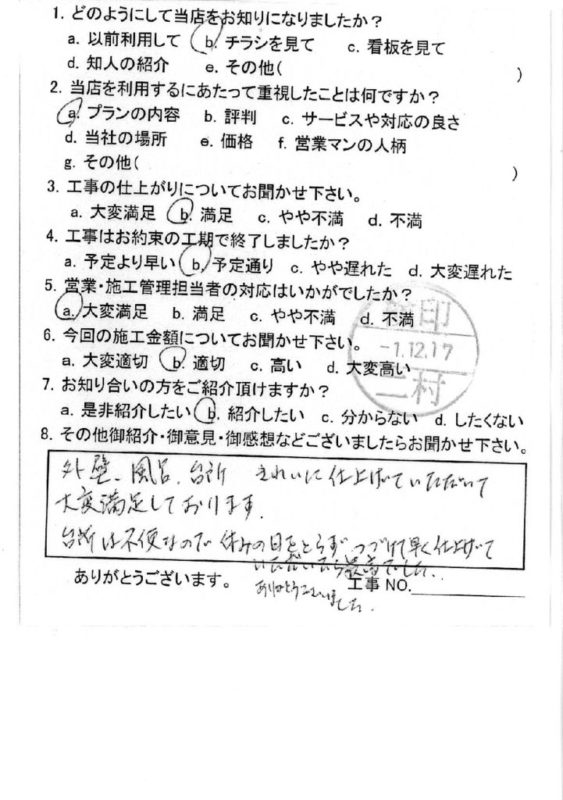 1. どのようにして当店をお知りになりましたか？
a. 以前利用して b. チラシを見て c. 看板を見て
d. 知人の紹介 e. その他( )
2. 当店を利用するにあたって重視したことは何ですか？
a. プランの内容 b. 評判 c. サービスや対応の良さ
d. 当社の場所 e. 価格 f. 営業マンの人柄
g. その他( )
3. 工事の仕上がりについてお聞かせ下さい。
a. 大変満足 b. 満足 c. やや不満 d. 不満
4. 工事はお約束の工期で終了しましたか？
a. 予定より早い b. 予定通り c. やや遅れた d. 大変遅れた
5. 営業・施工管理担当者の対応はいかがでしたか？
a. 大変満足 b. 満足 c. やや不満 d. 不満
印
6. 今回の施工金額についてお聞かせ下さい。
-1.12.17
a. 大変適切 b. 適切 c. 高い d. 大変高い
二村
7. お知り合いの方をご紹介頂けますか？
a. 是非紹介したい b. 紹介したい c. 分からない d. したくない
8. その他御紹介・御意見・御感想などございましたらお聞かせ下さい。
外壁、風呂、台所 きれいに仕上げていただいて
大変満足しております。
台所は不便なので休みの日をとらず つづけて早く仕上げて
いただいたら最高でした。
ありがとうございました。
ありがとうございます。 工事 NO.